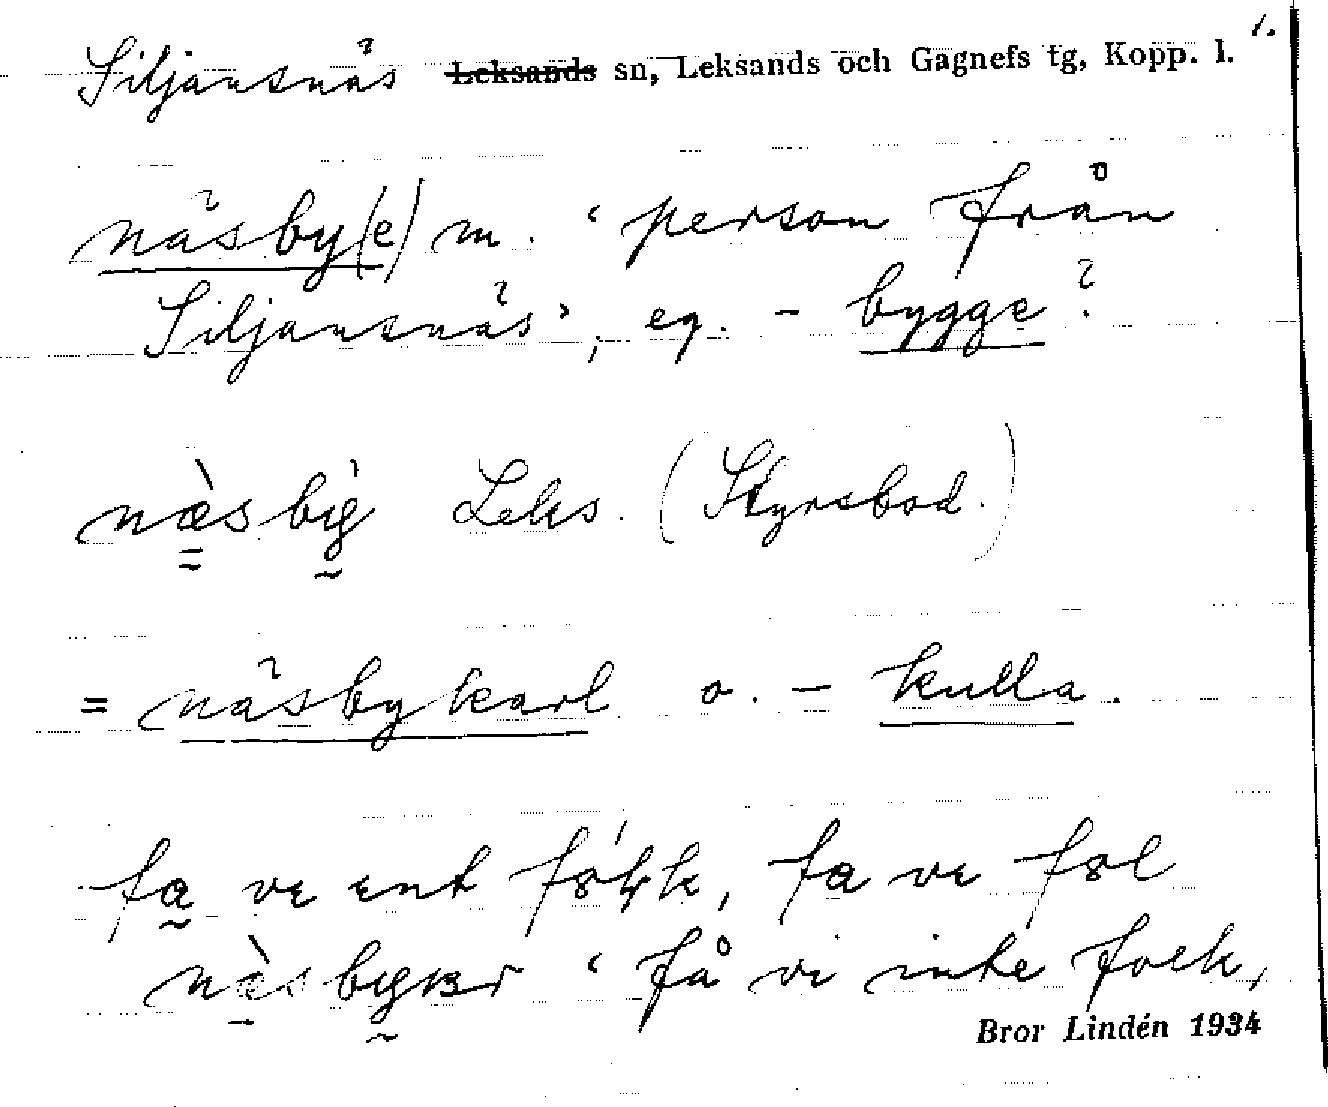 1.
Siljansnäs Leksands sn, Leksands och Gagnefs tg, Kopp. l.
näsby(e) m. ‘person från
Siljansnäs’, eg. - bygge?
Leks. (Styrsbod.)
= näsbykarl o. - kulla.
fa ve ent fókk, fa ve fol
‘få vi inte folk,
Bror Lindén 1934